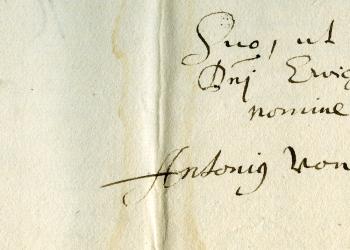 Suo, ut
Dnj Ervig
nomine
Antoniq von